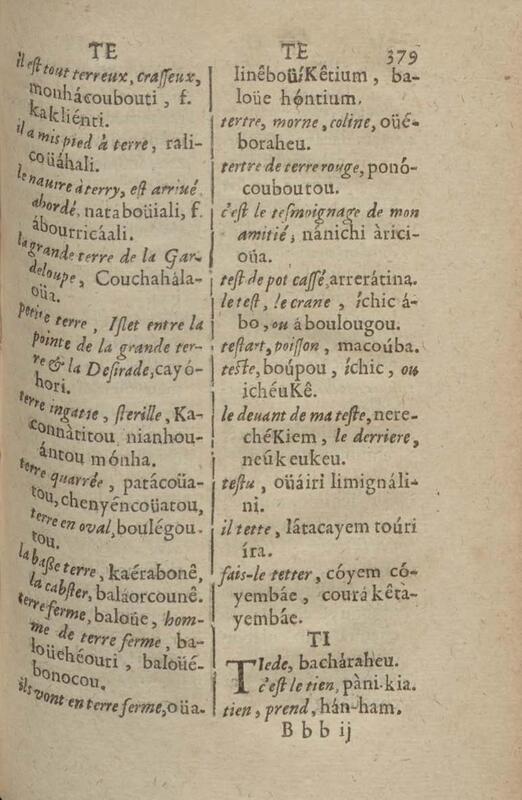 TE
il est tout terreux, crasseux,
monhácoubouti, f.
kakliénti.
il a mis pied à terre, rali-
coüáhali.
le nauire à terry, est arriué
abordé, nataboüiali, f.
ábourricáali.
la grande terre de la Gar-
deloupe, Couchahála-
oüa.
petite terre, Islet entre la
pointe de la grande ter-
re & la Desirade, cayó-
hori.
terre ingatte, sterille, Ka-
connàtitou, nianhou-
ántou mónha.
terre quarrée, patácoüa-
tou, chenyéncoüatou,
terre en oval, boulégou-
tou.
la basse terre, kaérabonê,
la cabster, balaorcounê.
terre ferme, baloüe, hom-
me de terre ferme, ba-
loüehéouri, baloüé-
bonocou.
ils vont en terre ferme, oüa-
TE 379
linêboüíKêtium, ba-
loüe hóntium.
tertre, morne, coline, oüé-
boraheu.
tertre de terre rouge, ponó-
couboutou.
c'est le tesmoignage de mon
amitié, nánichi àrici-
oüa.
test de pot cassé, arrerátina.
le test, le crane, íchic á-
bo, ou áboulougou.
testart, poisson, macoúba.
teste, boúpou, íchic, ou
ichéuKê.
le deuant de ma teste, nere-
chéKiem, le derriere,
neúkeukeu.
testu, oüáiri limignáli-
ni.
il tette, látacayem toúri
íra.
fais-le tetter, cóyem có-
yembáe, courá kêta-
yembáe.
TI
TIede, bacháraheu.
c'est le tien, pàni-kia.
tien, prend, hán-ham.
B b b ij